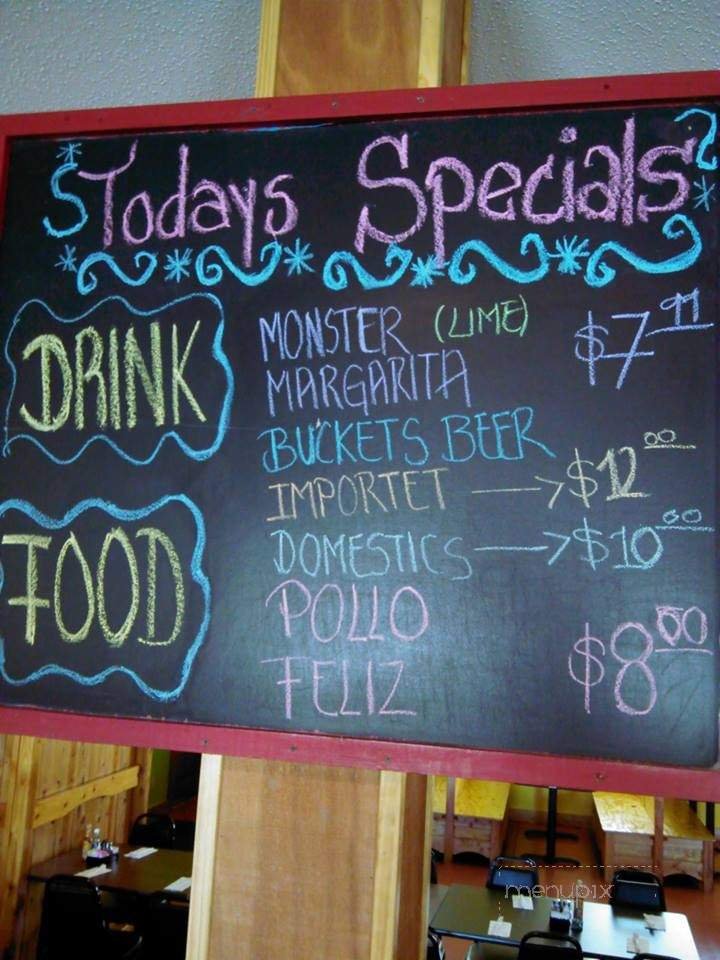 Todays Specials
DRINK
MONSTER (LIME) $7.99
MARGARITA
BUCKETS BEER
IMPORTET → $12.00
DOMESTICS → $10.00
FOOD
POLLO
FELIZ $8.00
menupix